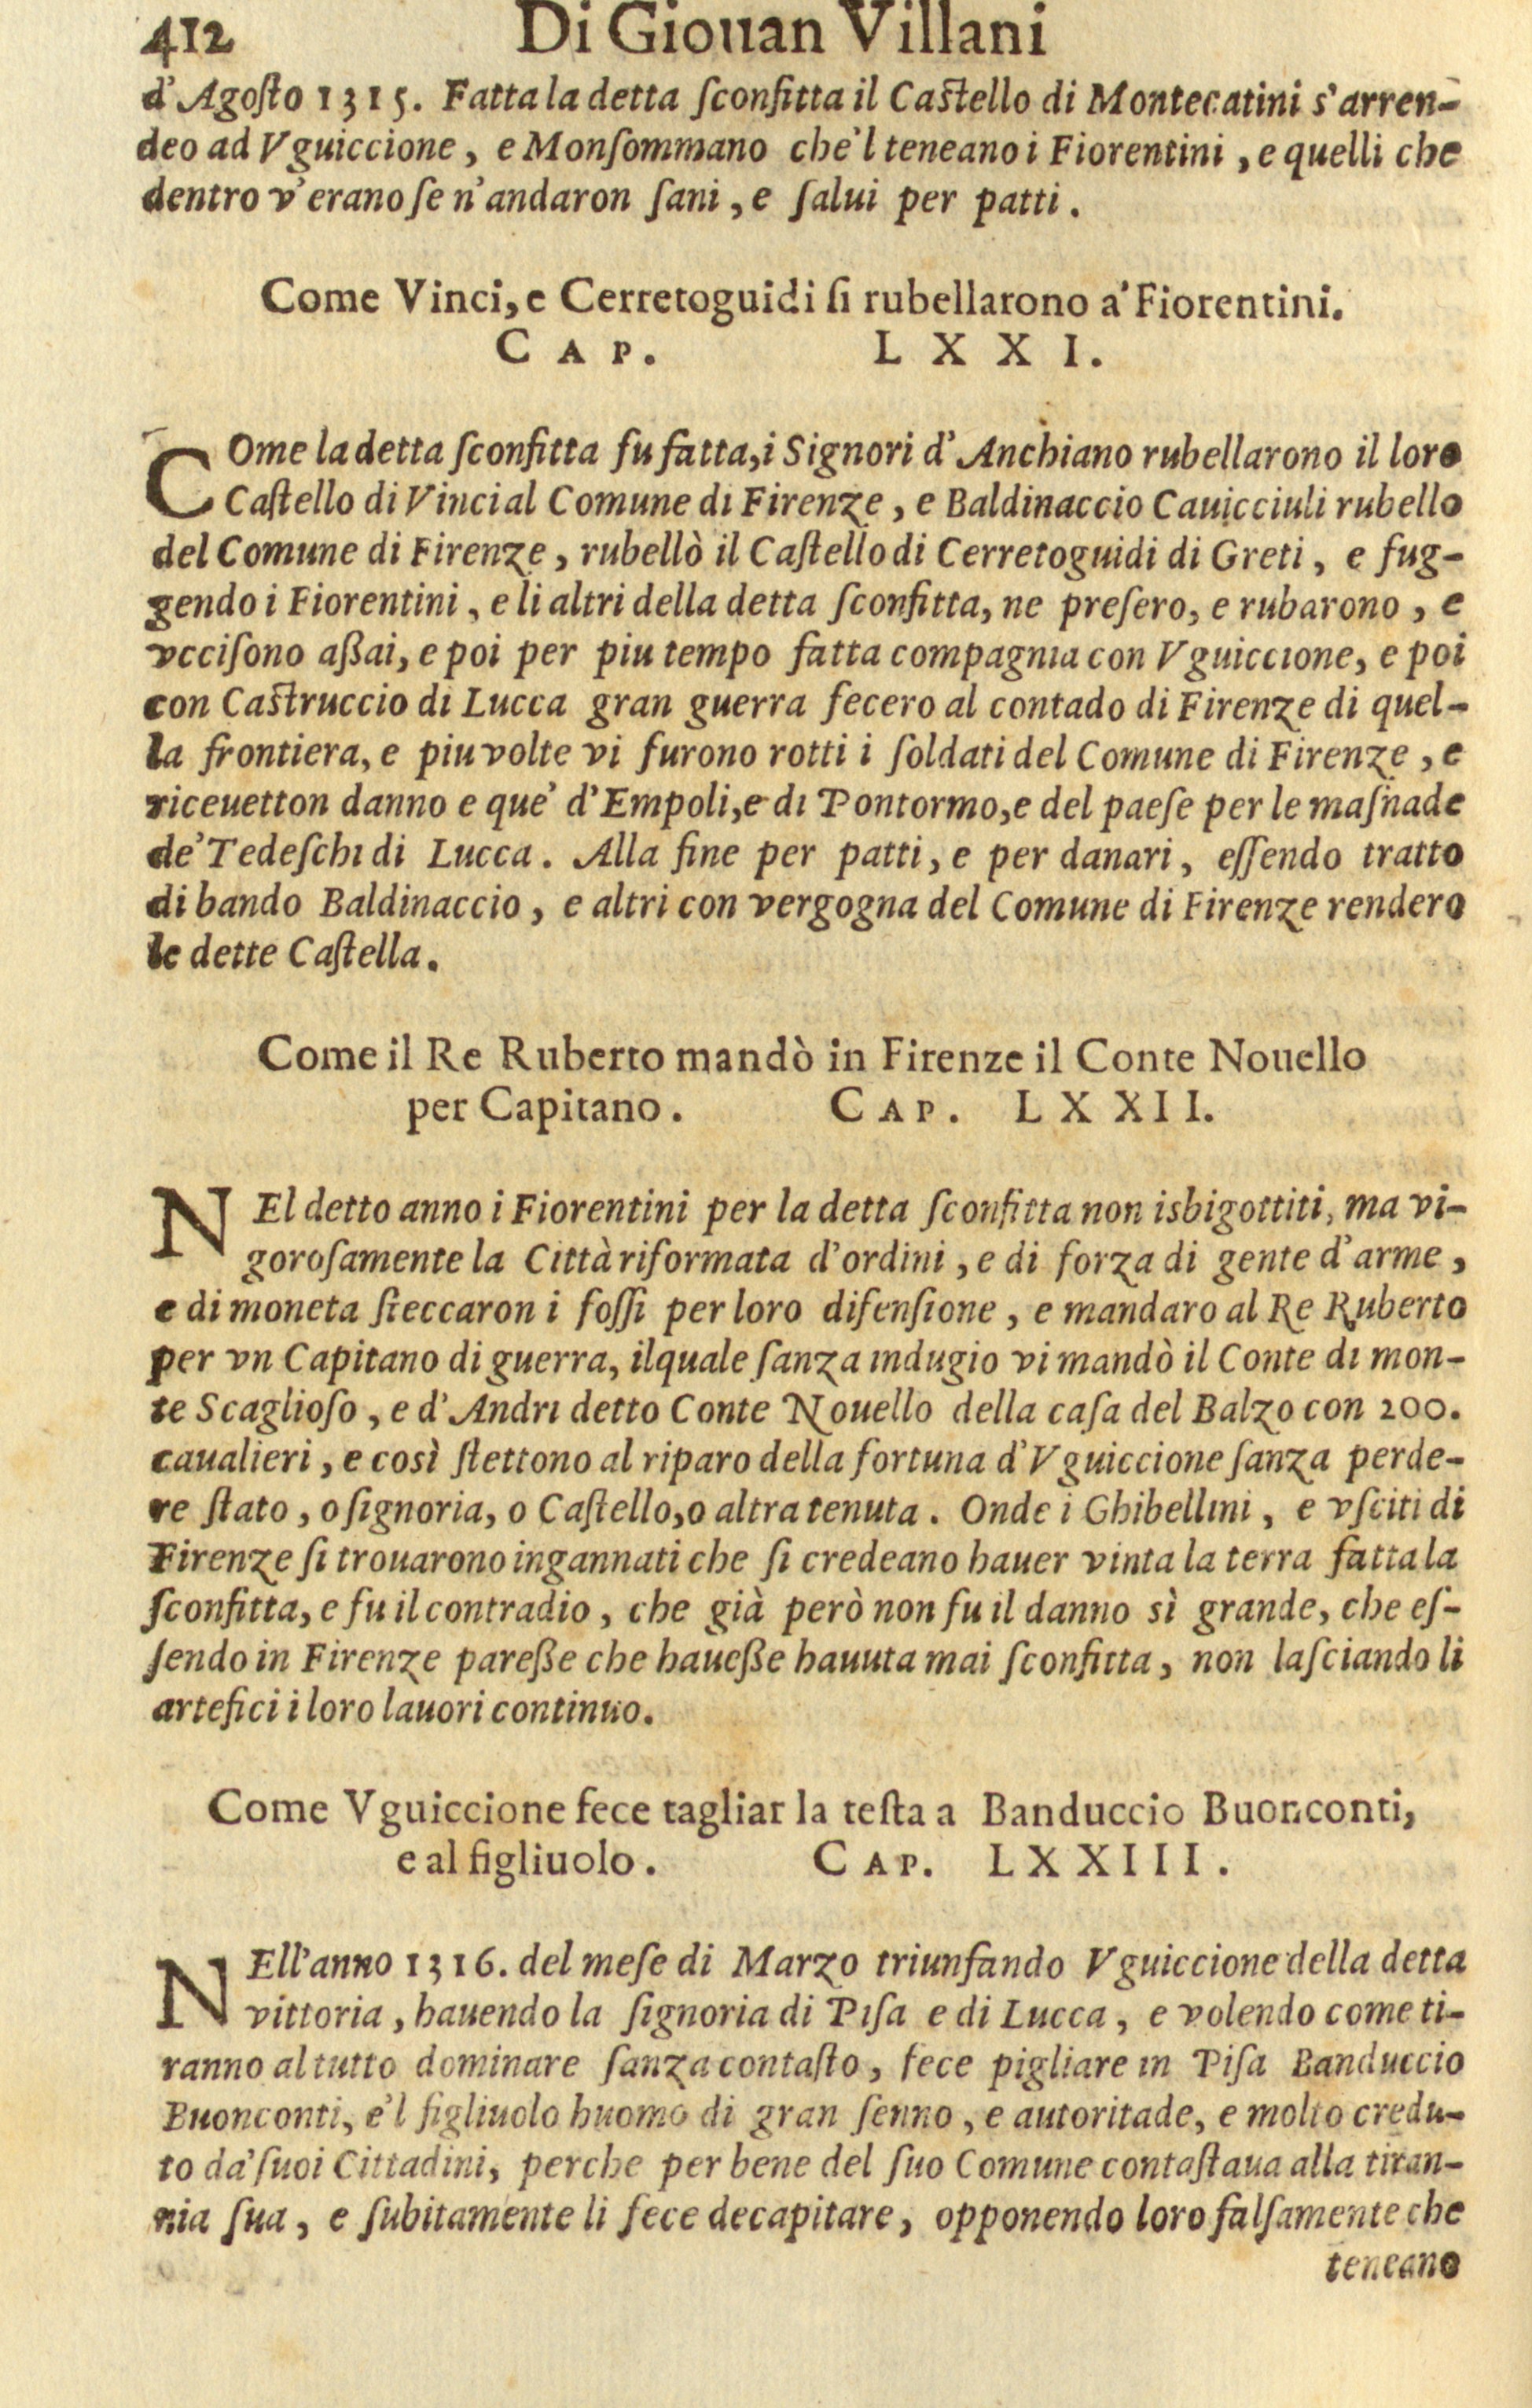 412 Di Giouan Villani
d'Agoſto 1315. Fatta la detta ſconfitta il Caſtello di Montecatini s'arren-
deo ad Vguiccione, e Monſommano che'l teneano i Fiorentini, e quelli che
dentro v'erano ſe n'andaron ſani, e ſalui per patti.
Come Vinci, e Cerretoguidi ſi rubellarono a' Fiorentini.
CAP. LXXI.
COme la detta ſconfitta fu fatta, i Signori d'Anchiano rubellarono il loro
Caſtello di Vinci al Comune di Firenze, e Baldinaccio Cauicciuli rubello
del Comune di Firenze, rubellò il Caſtello di Cerretoguidi di Greti, e fug-
gendo i Fiorentini, e li altri della detta ſconfitta, ne preſero, e rubarono, e
vcciſono aßai, e poi per piu tempo fatta compagnia con Vguiccione, e poi
con Caſtruccio di Lucca gran guerra fecero al contado di Firenze di quel-
la frontiera, e piu volte vi furono rotti i ſoldati del Comune di Firenze, e
riceuetton danno e que' d'Empoli, e di Pontormo, e del paeſe per le maſnade
de' Tedeſchi di Lucca. Alla fine per patti, e per danari, eſſendo tratto
di bando Baldinaccio, e altri con vergogna del Comune di Firenze rendero
le dette Caſtella.
Come il Re Ruberto mandò in Firenze il Conte Nouello
per Capitano. CAP. LXXII.
NEl detto anno i Fiorentini per la detta ſconfitta non isbigottiti, ma vi-
goroſamente la Città riformata d'ordini, e di forza di gente d'arme,
e di moneta ſteccaron i foſſi per loro difenſione, e mandaro al Re Ruberto
per vn Capitano di guerra, ilquale ſanza indugio vi mandò il Conte di mon-
te Scaglioſo, e d'Andri detto Conte Nouello della caſa del Balzo con 200.
caualieri, e così ſtettono al riparo della fortuna d'Vguiccione ſanza perde-
re ſtato, o ſignoria, o Caſtello, o altra tenuta. Onde i Ghibellini, e vſciti di
Firenze ſi trouarono ingannati che ſi credeano hauer vinta la terra fatta la
ſconfitta, e fu il contradio, che già però non fu il danno sì grande, che eſ-
ſendo in Firenze pareße che haueße hauuta mai ſconfitta, non laſciando li
artefici i loro lauori continuo.
Come Vguiccione fece tagliar la teſta a Banduccio Buonconti,
e al figliuolo. CAP. LXXIII.
NEll'anno 1316. del meſe di Marzo triunfando Vguiccione della detta
vittoria, hauendo la ſignoria di Piſa e di Lucca, e volendo come ti-
ranno al tutto dominare ſanza contaſto, fece pigliare in Piſa Banduccio
Buonconti, e'l figliuolo huomo di gran ſenno, e autoritade, e molto credu-
to da' ſuoi Cittadini, perche per bene del ſuo Comune contaſtaua alla tiran-
nia ſua, e ſubitamente li fece decapitare, opponendo loro falſamente che
teneano